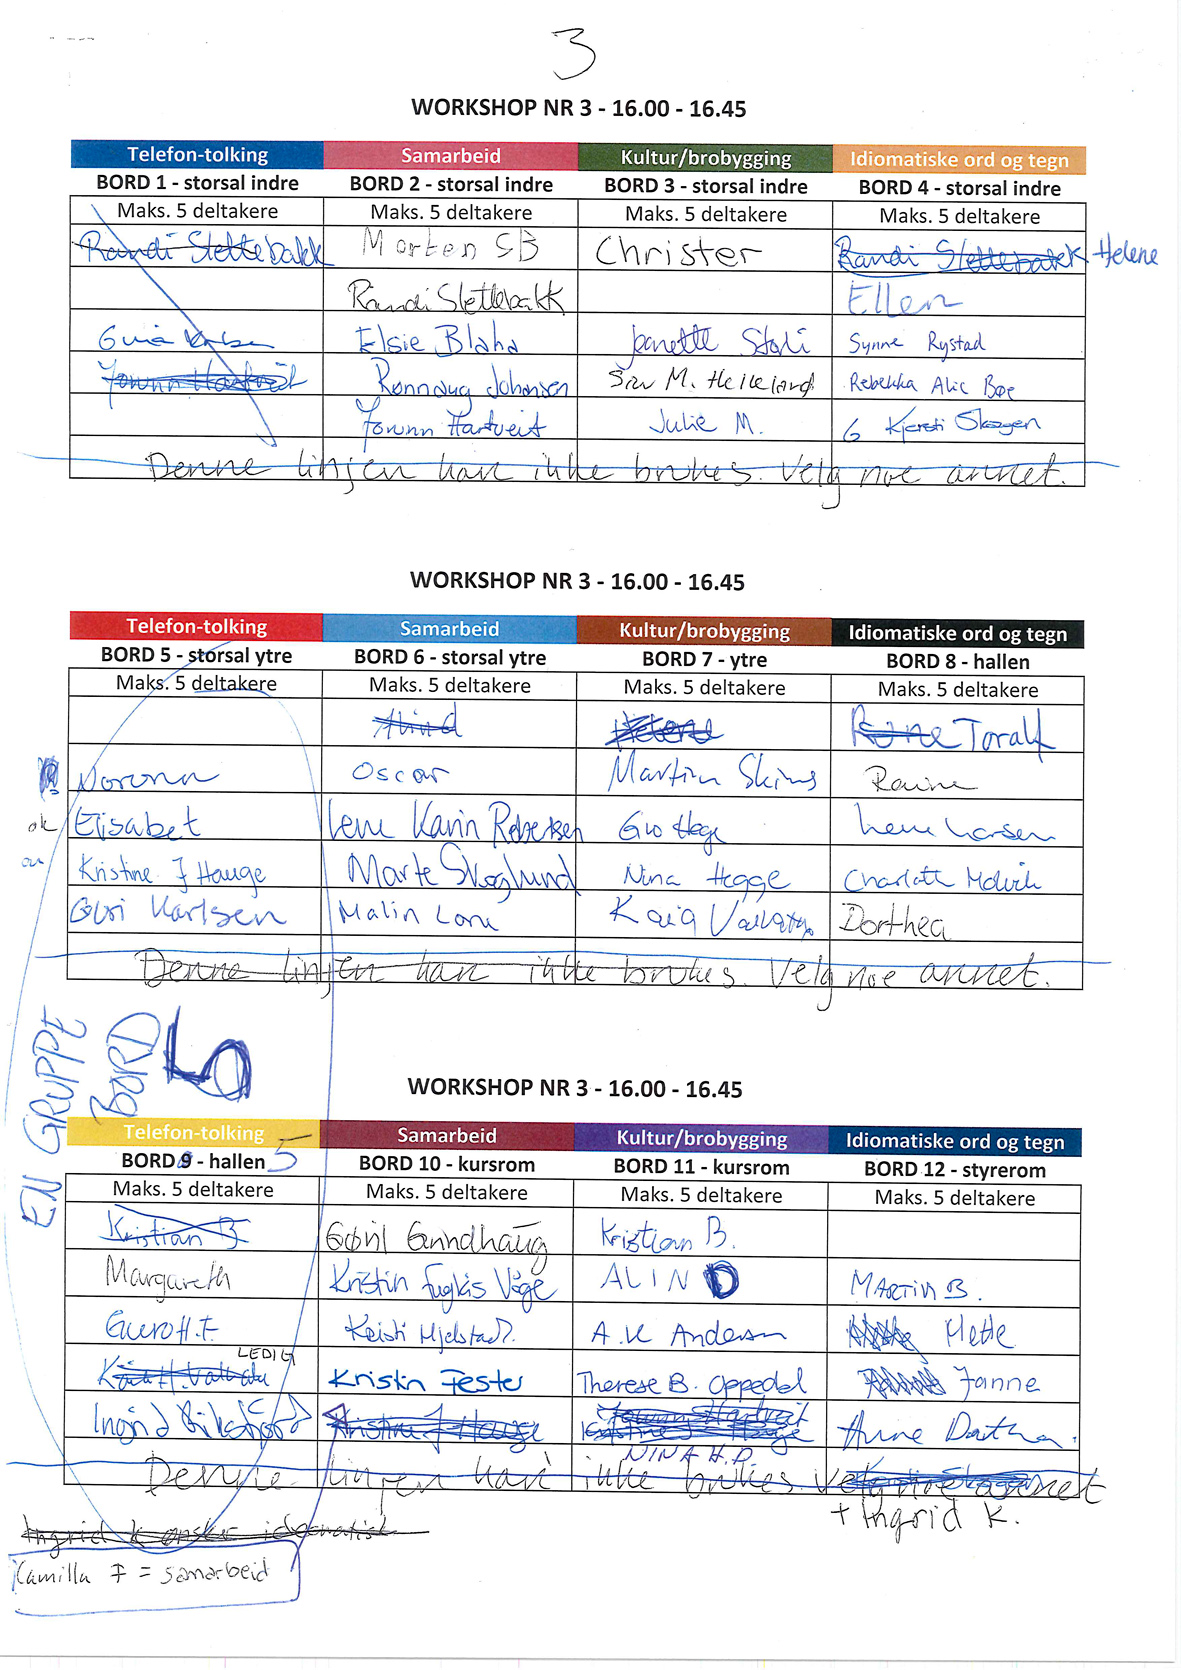 3
WORKSHOP NR 3 - 16.00 - 16.45
Telefon-tolking Samarbeid Kultur/brobygging Idiomatiske ord og tegn
BORD 1 - storsal indre BORD 2 - storsal indre BORD 3 - storsal indre BORD 4 - storsal indre
Maks. 5 deltakere Maks. 5 deltakere Maks. 5 deltakere Maks. 5 deltakere
Randi Slettebakk Morten SB Christer Randi Slettebakk Helene
Randi Slettebakk Ellen
Elsie Blaha Jeanette Synne Rystad
Jorunn Hartveit Rønnaug Johansen M. Helleland Rebekka Alic Bøe
Jorunn Hartveit Julie M. Kjersti Skogen
Denne linjen kan ikke brukes. Velg noe annet.
WORKSHOP NR 3 - 16.00 - 16.45
Telefon-tolking Samarbeid Kultur/brobygging Idiomatiske ord og tegn
BORD 5 - storsal ytre BORD 6 - storsal ytre BORD 7 - ytre BORD 8 - hallen
Maks. 5 deltakere Maks. 5 deltakere Maks. 5 deltakere Maks. 5 deltakere
Helene Toralf
Oscar Martin
ok Elisabet Lene Karin Robertsen Gro Hege Lene Larsen
Kristine J Hauge Marte Skoglund Nina Hegge
Guri Karlsen Malin Kaia Dorthea
Denne linjen kan ikke brukes. Velg noe annet.
EN GRUPPE
BORD
5
WORKSHOP NR 3 - 16.00 - 16.45
Telefon-tolking Samarbeid Kultur/brobygging Idiomatiske ord og tegn
BORD 9 - hallen 5 BORD 10 - kursrom BORD 11 - kursrom BORD 12 - styrerom
Maks. 5 deltakere Maks. 5 deltakere Maks. 5 deltakere Maks. 5 deltakere
Kristian B Kristian B.
Margareth Kristin ALIND MARTIN B.
Guro H.F. A.K Andersen Mette
LEDIG
Kristin Fester Therese B. Oppedal Janne
Ingrid Kristine J Hauge Jorunn Hartveit Anne
NINA H.P.
Denne linjen kan ikke brukes. Velg noe annet
+ Ingrid K.
Ingrid K ønsker
Camilla F = samarbeid